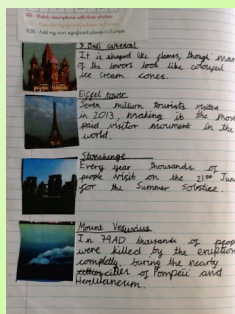 Match descriptions with their photos
Add my own significant places in Europe
It is shaped like flames, though many
of the towers look like colourful
ice cream cones.
Eiffel tower
Seven million tourists visited
in 2013, making it the most
paid visitor monument in the
world.
Stonehenge
Every year thousands of
people visit on the 21st June
for the Summer Solstice.
Mount Vesuvius
In 79AD thousands of people
were killed by the eruption
completly buring the nearby
cities of Pompeii and
Herculaneum.